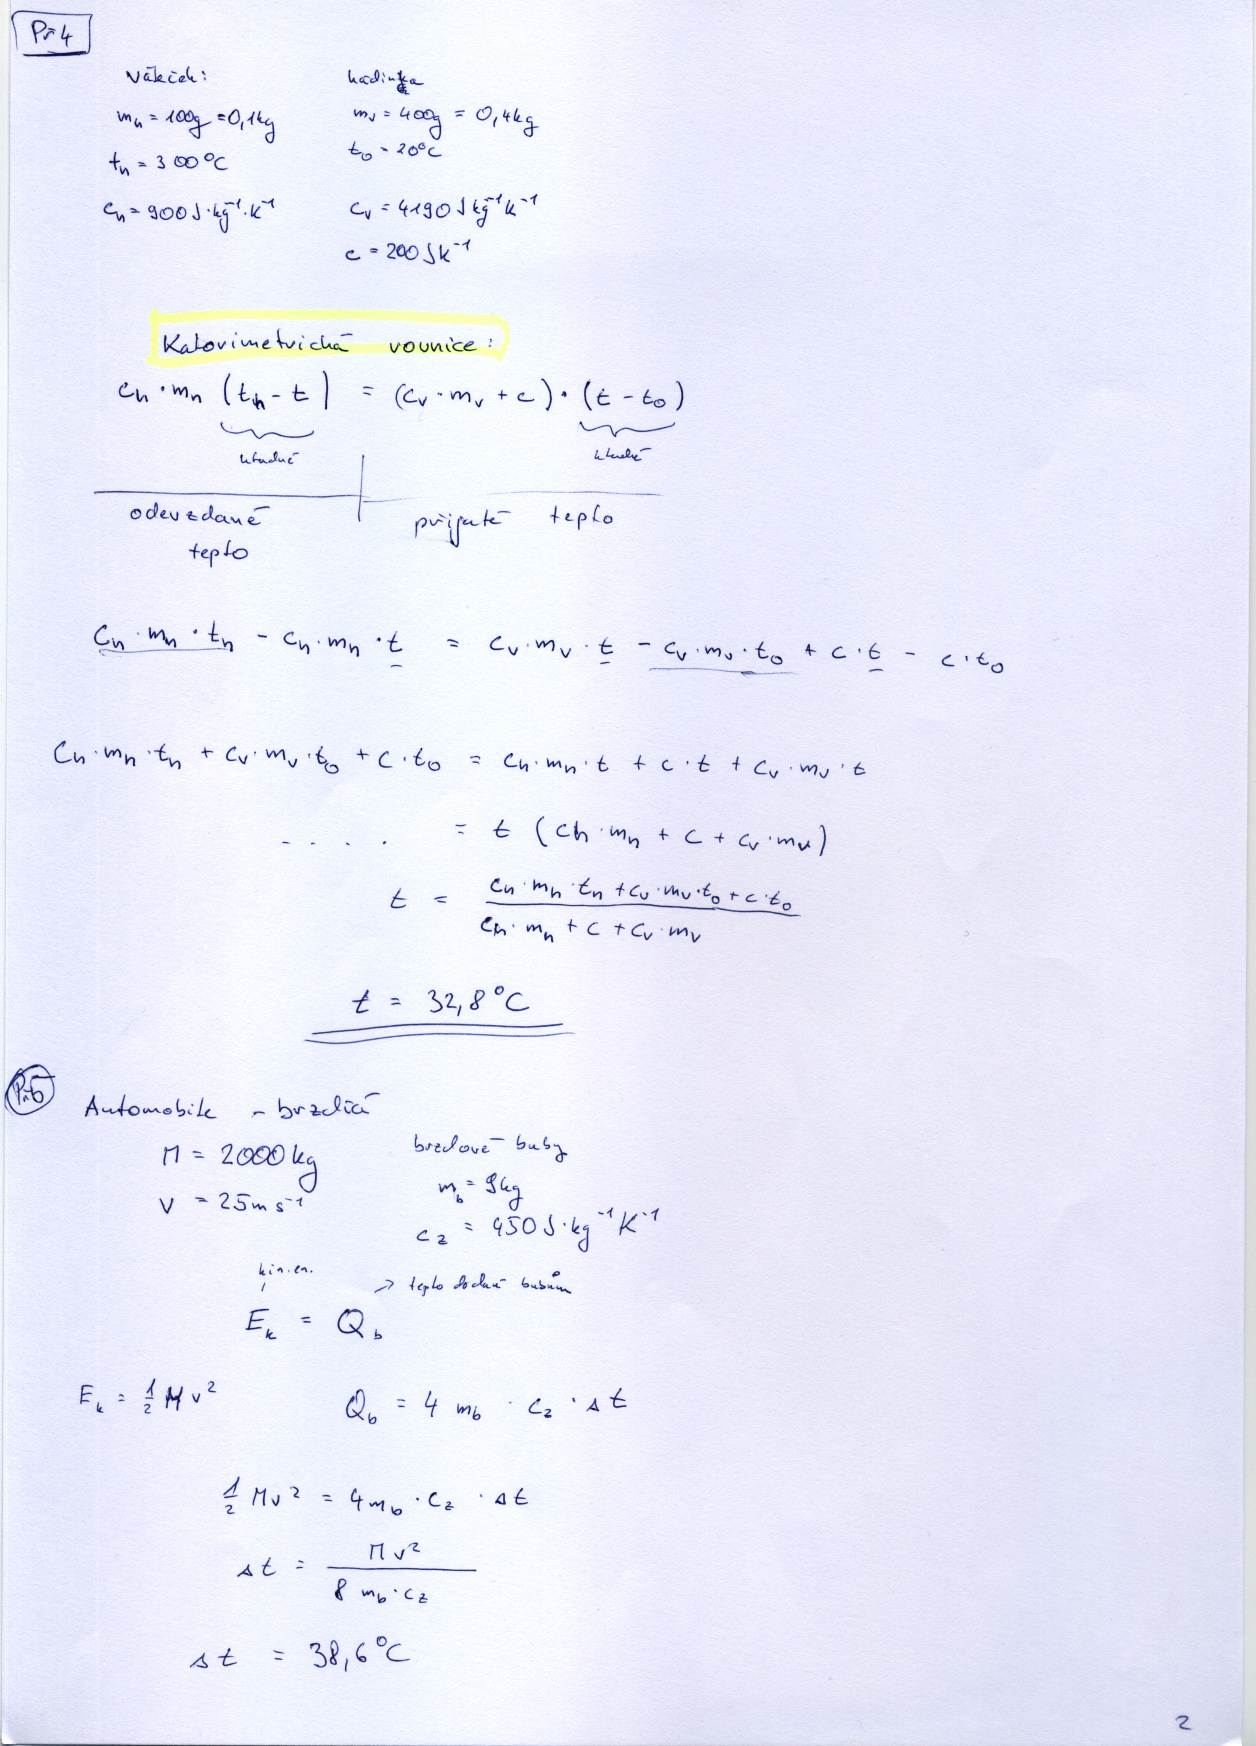 Př 4
Váleček:
m_h = 100g = 0,1kg
t_h = 300°C
c_h = 900 J·kg⁻¹·K⁻¹
m_v = 400g = 0,4kg
t_0 = 20°C
c_v = 4190 J kg⁻¹ K⁻¹
c = 200 J K⁻¹
Kalorimetrická rovnice:
c_h · m_h (t_h - t) = (c_v · m_v + c) · (t - t_0)
odevzdané teplo
přijaté teplo
c_h · m_h · t_h - c_h · m_h · t = c_v · m_v · t - c_v · m_v · t_0 + c · t - c · t_0
c_h · m_h · t_h + c_v · m_v · t_0 + c · t_0 = c_h · m_h · t + c · t + c_v · m_v · t
. . . . = t (c_h · m_h + c + c_v · m_v)
t = (c_h · m_h · t_h + c_v · m_v · t_0 + c · t_0) / (c_h · m_h + c + c_v · m_v)
t = 32,8°C
Automobile - brzdící
M = 2000 kg
v = 25 m s⁻¹
brzdové buby
m_b = 9kg
c_z = 450 J·kg⁻¹ K⁻¹
kin. en.
→ teplo dodané bubům
E_k = Q_b
E_k = ½ M v²
Q_b = 4 m_b · c_z · Δt
½ M v² = 4 m_b · c_z · Δt
Δt = M v² / (8 m_b · c_z)
Δt = 38,6°C
2